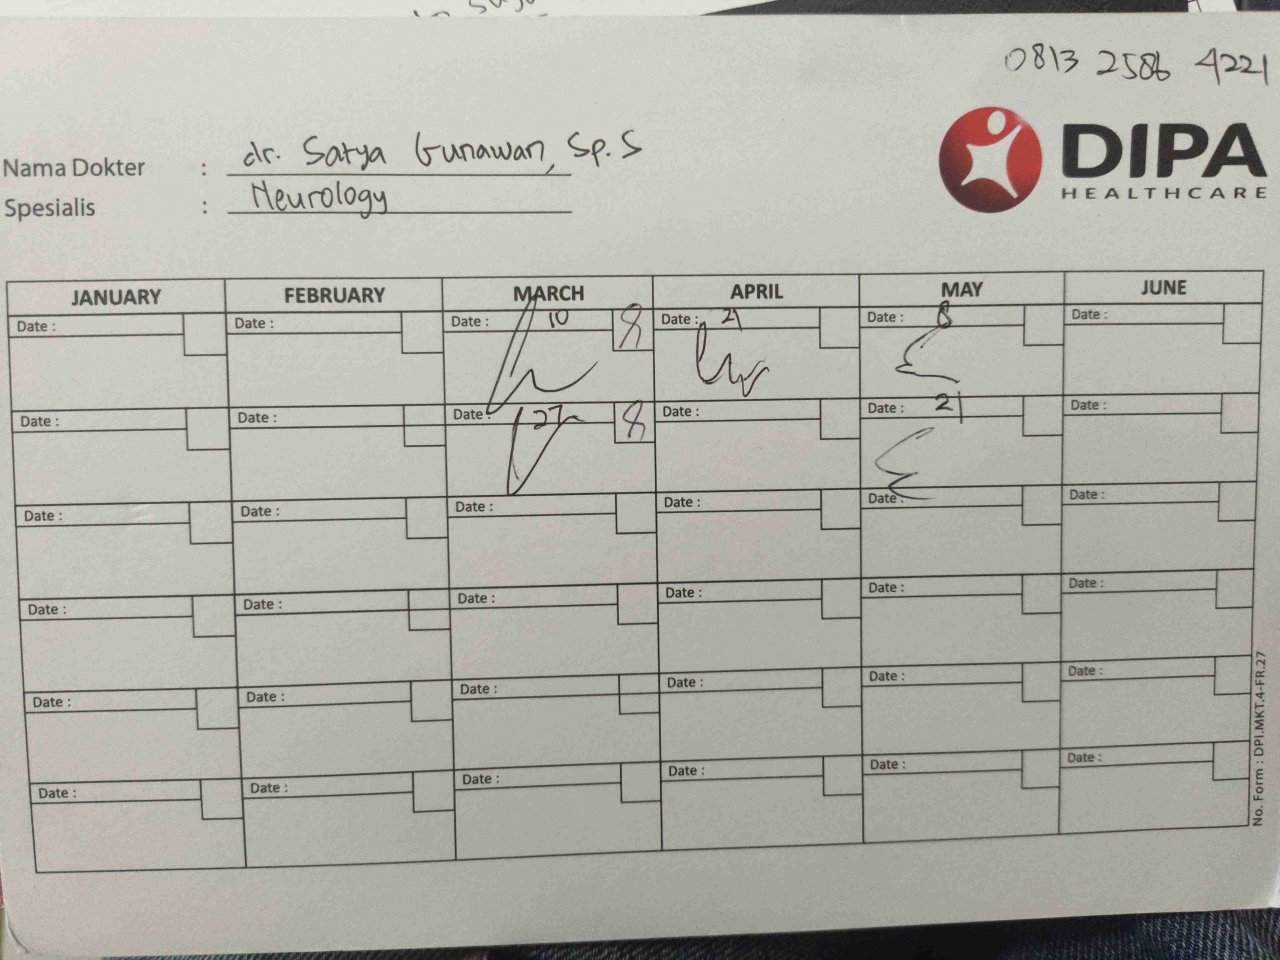 0813 2586 4221
DIPA
HEALTHCARE
Nama Dokter : dr. Satya Gunawan, Sp.S
Spesialis : Neurology
JANUARY FEBRUARY MARCH APRIL MAY JUNE
Date : Date : Date : 10 Date : 21 Date : 8 Date :
Date : Date : Date : 27 Date : Date : 21 Date :
Date : Date : Date : Date : Date : Date :
Date : Date : Date : Date : Date : Date :
Date : Date : Date : Date : Date : Date :
Date : Date : Date : Date : Date : Date :
No. Form : DPI.MKT.4-FR.27